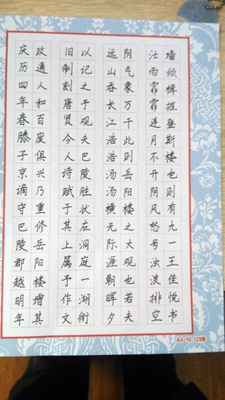 庆历四年春滕子京谪守巴陵郡越明年
政通人和百度俱兴乃重修岳阳楼增其
旧制刻唐贤今人诗赋于其上属予作文
以记之予观夫巴陵胜状在洞庭一湖衔
远山吞长江浩浩汤汤横无际涯朝晖夕
阴气象万千此则岳阳楼之大观也若夫
淫雨霏霏连月不开阴风怒号浊浪排空
墙倾楫摧登斯楼也则有九一王佳悦书
A4-10-128格